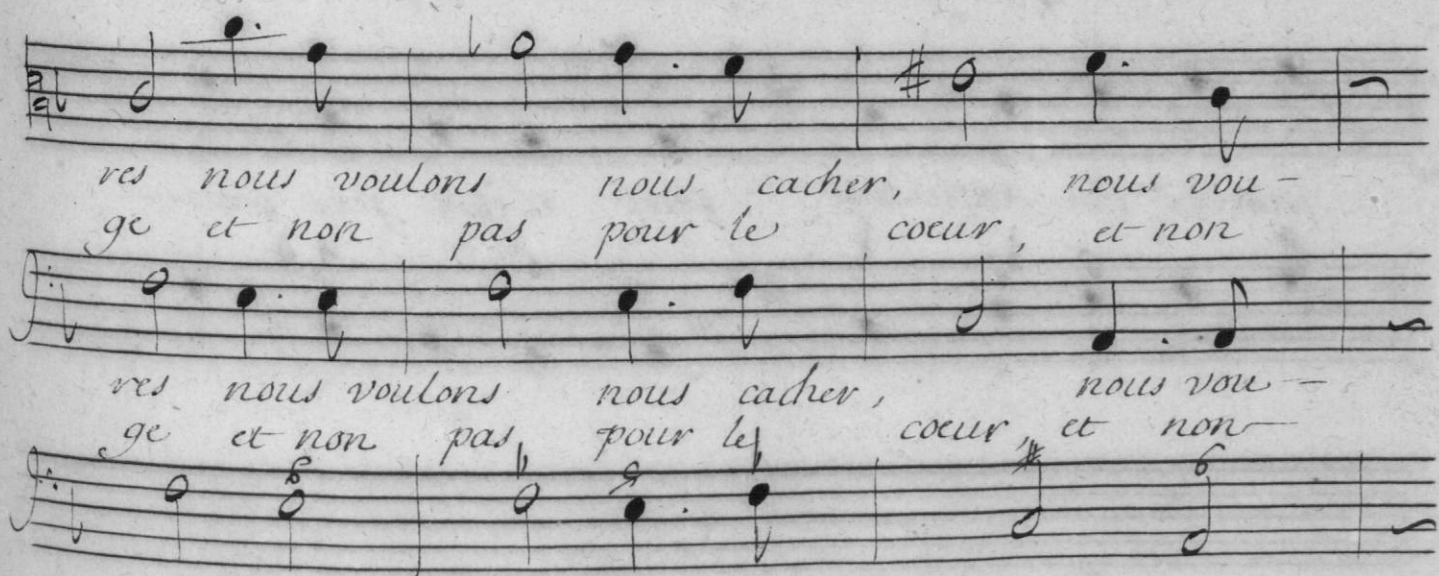 res nous voulons nous cacher, nous vou-
ge et non pas pour le coeur, et non
res nous voulons nous cacher, nous vou-
ge et non pas pour le coeur, et non-